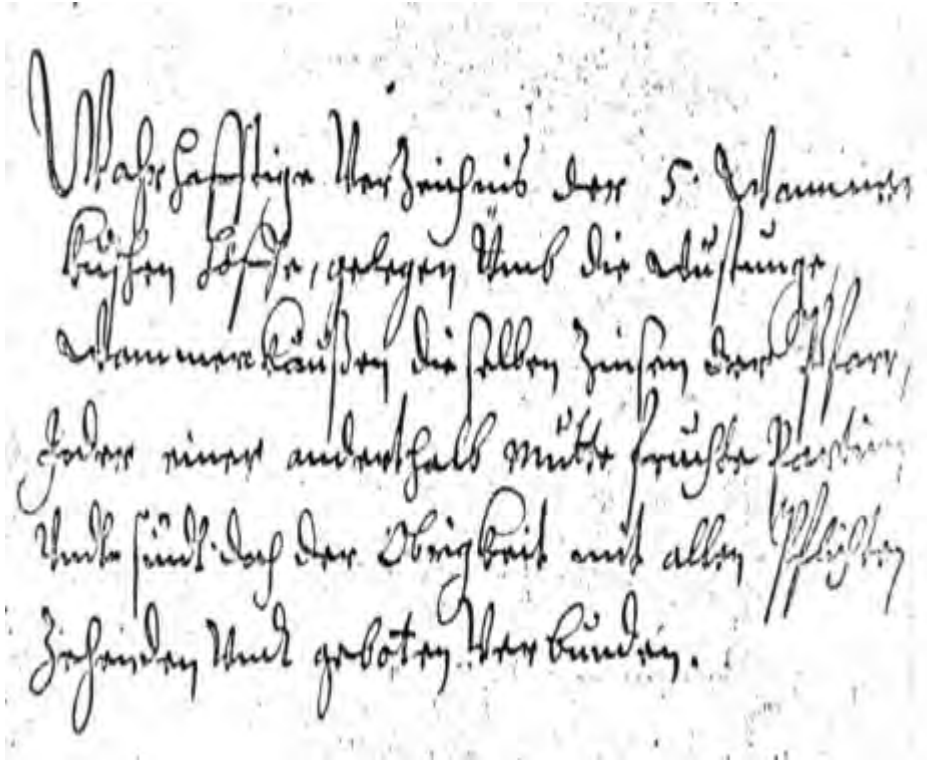 Wahrhafftige Verzeichnis der 5. Wammen
Käusen höffe, gelegen Umb die wüstunge,
Wammen Käußen dieselben Zinsen der Pfarr,
Jeder einer anderthalb mutte fruchte Partim
Undt sindt doch der Obrigkeit mit allen Pflichten
Zehenden Undt geboten Verbunden.